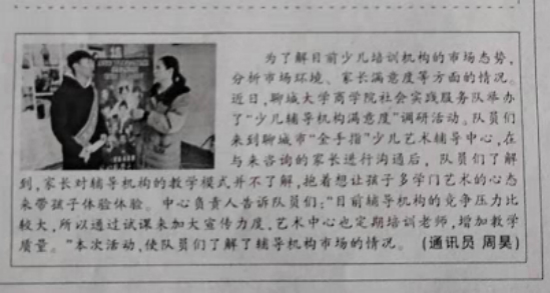 为了解目前少儿培训机构的市场态势，
分析市场环境、家长满意度等方面的情况。
近日，聊城大学商学院社会实践服务队举办
了“少儿辅导机构满意度”调研活动。队员们
来到聊城市“金手指”少儿艺术辅导中心，在
与来咨询的家长进行沟通后，队员们了解
到，家长对辅导机构的教学模式并不了解，抱着想让孩子多学门艺术的心态
来带孩子体验体验。中心负责人告诉队员们：“目前辅导机构的竞争压力比
较大，所以通过试课来加大宣传力度，艺术中心也定期培训老师，增加教学
质量。”本次活动，使队员们了解了辅导机构市场的情况。（通讯员 周昊）